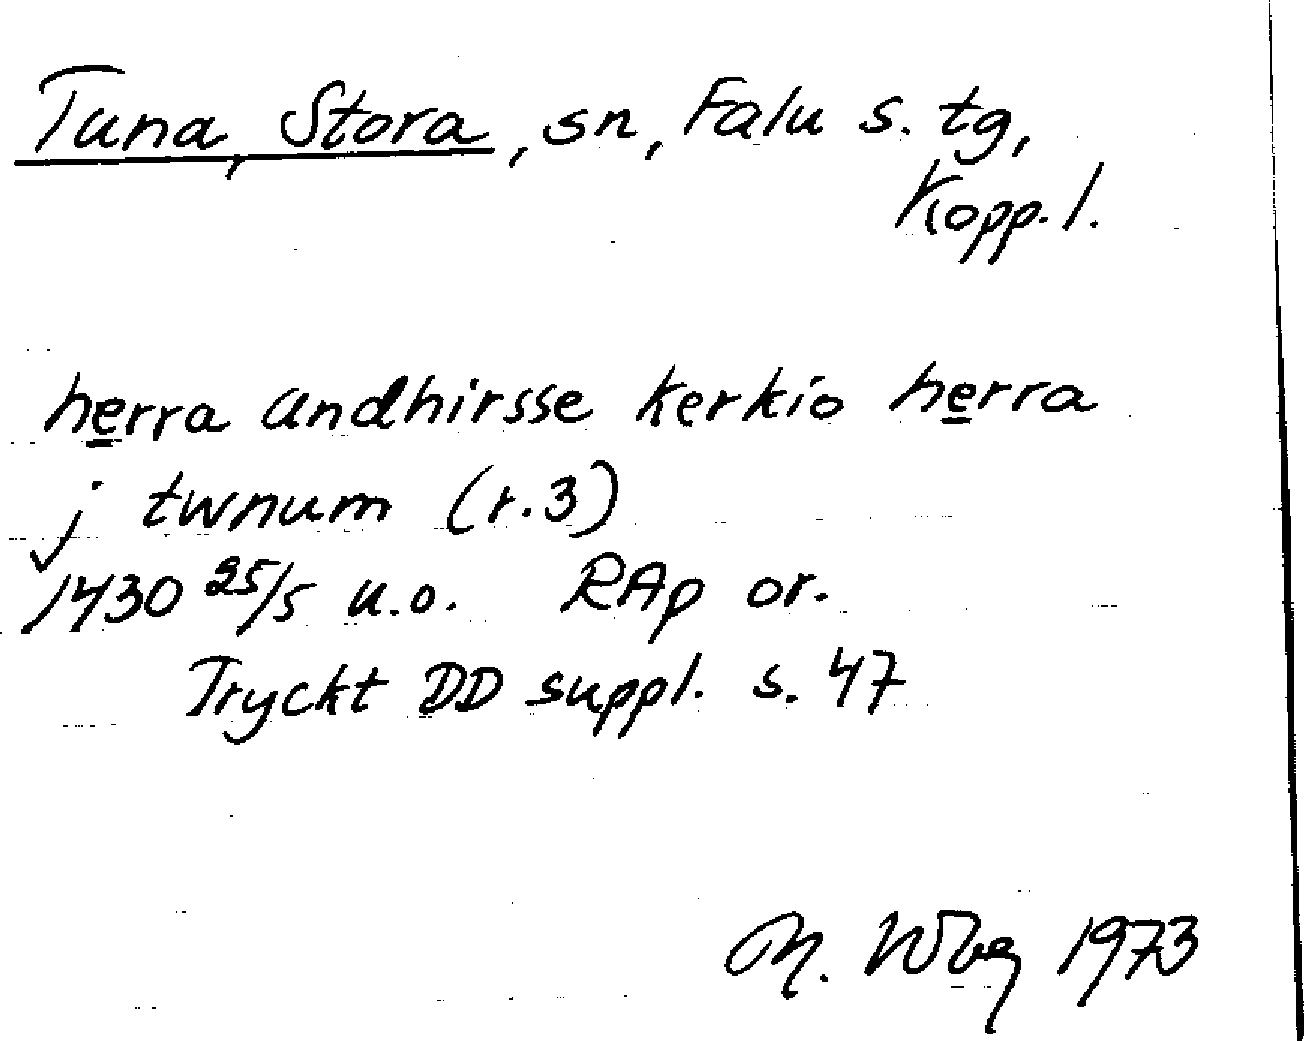 Tuna, Stora, sn, Falu s. tg,
Kopp. l.
herra andhirsse kerkio herra
j twnum (r.3)
1430 25/5 u.o. RAp or.
Tryckt DD suppl. s. 47
M. Wbg 1973